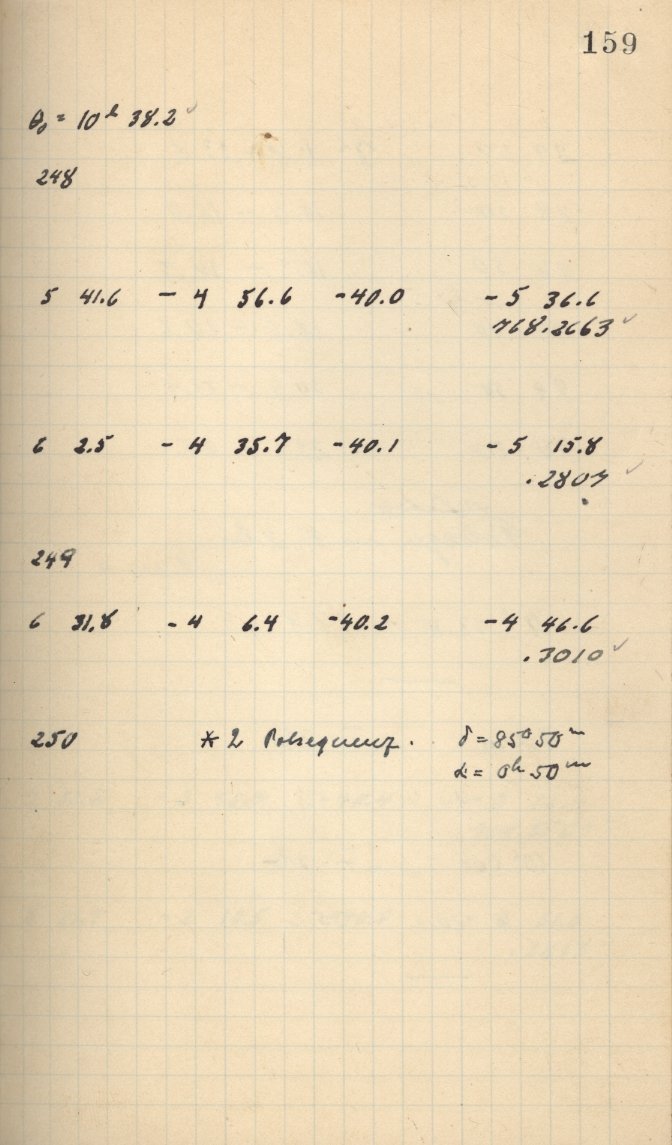 159
θ₀ = 10ʰ 38.2 ✓
248
5 41.6 - 4 56.6 -40.0 - 5 36.6
768.2663 ✓
6 2.5 - 4 35.7 -40.1 - 5 15.8
.2807 ✓
249
6 31.8 - 4 6.4 -40.2 -4 46.6
.3010 ✓
250 * 2 Polsequenz. δ = 85° 50ᵐ
α = 0ʰ 50ᵐ